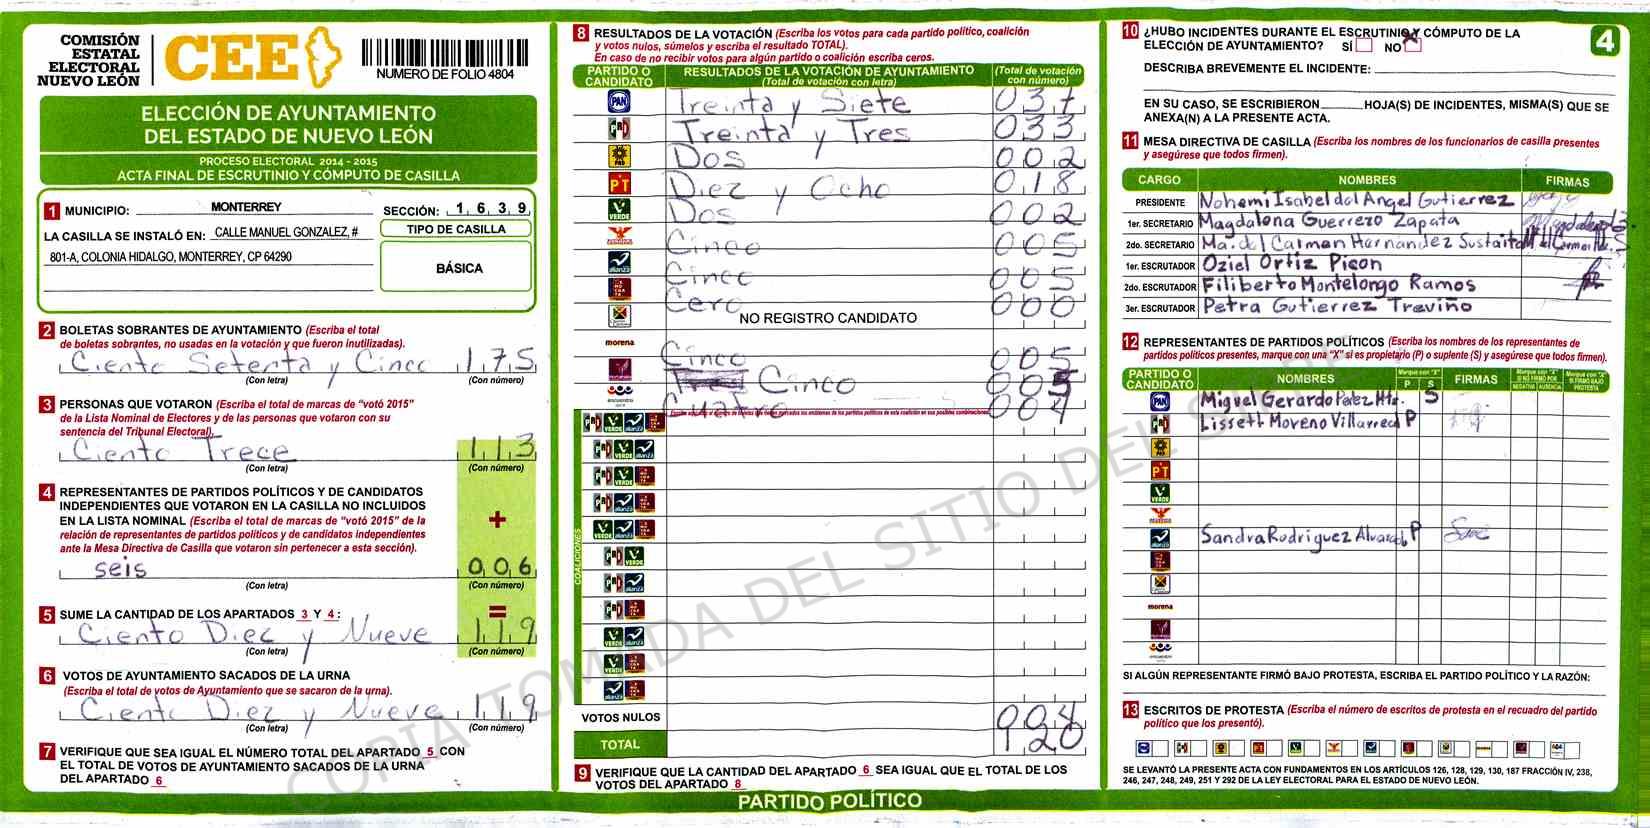 COMISIÓN
ESTATAL
ELECTORAL
NUEVO LEÓN
CEE
NUMERO DE FOLIO 4804
ELECCIÓN DE AYUNTAMIENTO
DEL ESTADO DE NUEVO LEÓN
PROCESO ELECTORAL 2014 - 2015
ACTA FINAL DE ESCRUTINIO Y CÓMPUTO DE CASILLA
1 MUNICIPIO: MONTERREY SECCIÓN: 1 6 3 9
LA CASILLA SE INSTALÓ EN: CALLE MANUEL GONZALEZ, #
801-A, COLONIA HIDALGO, MONTERREY, CP 64290
TIPO DE CASILLA
BÁSICA
2 BOLETAS SOBRANTES DE AYUNTAMIENTO (Escriba el total
de boletas sobrantes, no usadas en la votación y que fueron inutilizadas).
Ciento Setenta y Cinco 1 7 5
(Con letra) (Con número)
3 PERSONAS QUE VOTARON (Escriba el total de marcas de “votó 2015”
de la Lista Nominal de Electores y de las personas que votaron con su
sentencia del Tribunal Electoral).
Ciento Trece 1 1 3
(Con letra) (Con número)
4 REPRESENTANTES DE PARTIDOS POLÍTICOS Y DE CANDIDATOS
INDEPENDIENTES QUE VOTARON EN LA CASILLA NO INCLUIDOS
EN LA LISTA NOMINAL (Escriba el total de marcas de “votó 2015” de la
relación de representantes de partidos políticos y de candidatos independientes
ante la Mesa Directiva de Casilla que votaron sin pertenecer a esta sección).
+
seis 0 0 6
(Con letra) (Con número)
5 SUME LA CANTIDAD DE LOS APARTADOS 3 Y 4 :
=
Ciento Diez y Nueve 1 1 9
(Con letra) (Con número)
6 VOTOS DE AYUNTAMIENTO SACADOS DE LA URNA
(Escriba el total de votos de Ayuntamiento que se sacaron de la urna).
Ciento Diez y Nueve 1 1 9
(Con letra) (Con número)
7 VERIFIQUE QUE SEA IGUAL EL NÚMERO TOTAL DEL APARTADO 5 CON
EL TOTAL DE VOTOS DE AYUNTAMIENTO SACADOS DE LA URNA
DEL APARTADO 6
8 RESULTADOS DE LA VOTACIÓN (Escriba los votos para cada partido político, coalición
y votos nulos, súmelos y escriba el resultado TOTAL).
En caso de no recibir votos para algún partido o coalición escriba ceros.
PARTIDO O CANDIDATO
RESULTADOS DE LA VOTACIÓN DE AYUNTAMIENTO
(Total de votación con letra)
(Total de votación con número)
PAN Treinta y Siete 0 3 7
PRI Treinta y Tres 0 3 3
PRD Dos 0 0 2
PT Diez y Ocho 0 1 8
VERDE Dos 0 0 2
Cinco 0 0 5
alianza Cinco 0 0 5
Cero 0 0 0
NO REGISTRO CANDIDATO
morena
Cinco 0 0 5
Cinco 0 0 5
encuentro Cuatro 0 0 4
COALICIONES
VOTOS NULOS 0 0 4
TOTAL 1 2 0
9 VERIFIQUE QUE LA CANTIDAD DEL APARTADO 6 SEA IGUAL QUE EL TOTAL DE LOS
VOTOS DEL APARTADO 8
PARTIDO POLÍTICO
10 ¿HUBO INCIDENTES DURANTE EL ESCRUTINIO Y CÓMPUTO DE LA
ELECCIÓN DE AYUNTAMIENTO? SÍ NO X
4
DESCRIBA BREVEMENTE EL INCIDENTE:
EN SU CASO, SE ESCRIBIERON HOJA(S) DE INCIDENTES, MISMA(S) QUE SE
ANEXA(N) A LA PRESENTE ACTA.
11 MESA DIRECTIVA DE CASILLA (Escriba los nombres de los funcionarios de casilla presentes
y asegúrese que todos firmen).
CARGO NOMBRES FIRMAS
PRESIDENTE Nohemi Isabel del Angel Gutierrez
1er. SECRETARIO Magdalena Guerrero Zapata
2do. SECRETARIO Ma. del Carmen Hernandez Sustaita
1er. ESCRUTADOR Oziel Ortiz Picon
2do. ESCRUTADOR Filiberto Montelongo Ramos
3er. ESCRUTADOR Petra Gutierrez Treviño
12 REPRESENTANTES DE PARTIDOS POLÍTICOS (Escriba los nombres de los representantes de
partidos políticos presentes, marque con una “X” si es propietario (P) o suplente (S) y asegúrese que todos firmen).
PARTIDO O CANDIDATO NOMBRES Marque con "X" P S FIRMAS Marque con "X" SI NO FIRMÓ POR NEGATIVA AUSENCIA Marque con "X" SI FIRMÓ BAJO PROTESTA
PAN Miguel Gerardo Perez Mtz. S
PRI Lissett Moreno Villarreal P
PRD
PT
VERDE
alianza Sandra Rodriguez Alvarado P
morena
encuentro
SI ALGÚN REPRESENTANTE FIRMÓ BAJO PROTESTA, ESCRIBA EL PARTIDO POLÍTICO Y LA RAZÓN:
13 ESCRITOS DE PROTESTA (Escriba el número de escritos de protesta en el recuadro del partido
político que los presentó).
SE LEVANTÓ LA PRESENTE ACTA CON FUNDAMENTOS EN LOS ARTÍCULOS 126, 128, 129, 130, 187 FRACCIÓN IV, 238,
246, 247, 248, 249, 251 Y 292 DE LA LEY ELECTORAL PARA EL ESTADO DE NUEVO LEÓN.
COPIA TOMADA DEL SITIO DEL